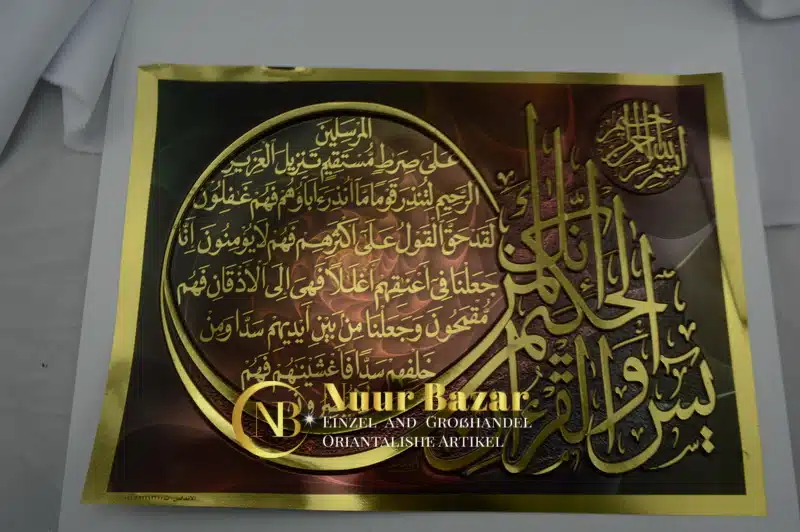 بسم الله الرحمن الرحيم
يس والقرءان الحكيم إنك لمن
المرسلين
على صرط مستقيم تنزيل العزيز
الرحيم لتنذر قوما ما أنذر ءاباؤهم فهم غفلون
لقد حق القول على أكثرهم فهم لا يؤمنون إنا
جعلنا في أعنقهم أغللا فهى إلى الأذقان فهم
مقمحون وجعلنا من بين أيديهم سدا ومن
خلفهم سدا فأغشينهم فهم
NB
Nuur Bazar
Einzel and Großhandel
Oriantalishe Artikel